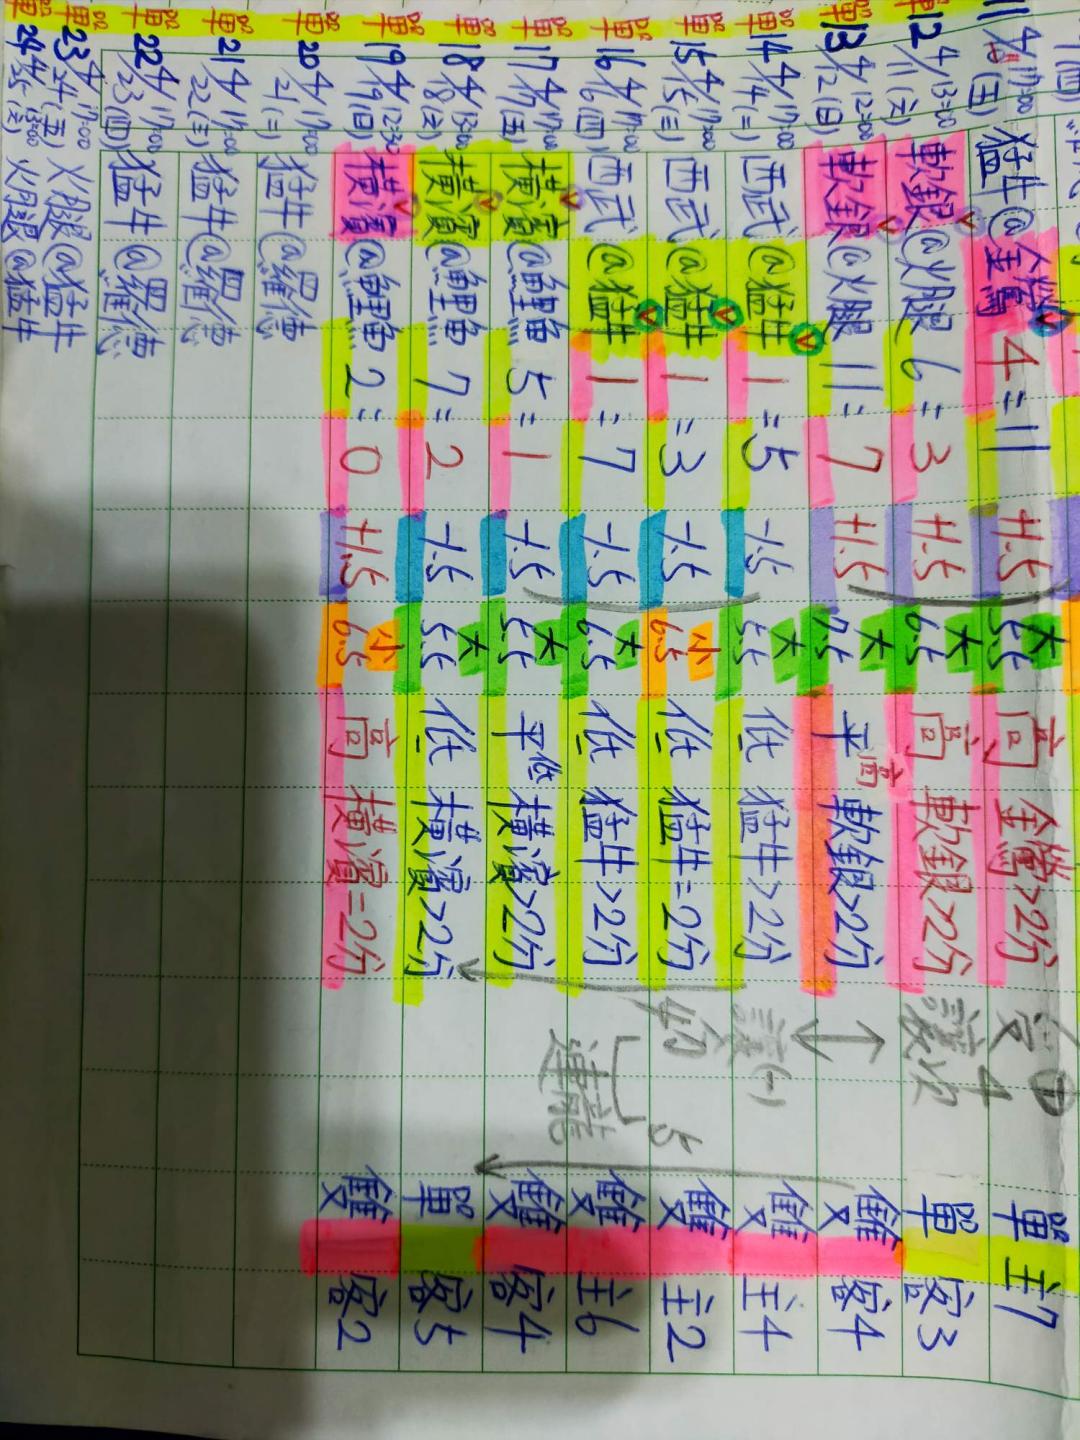 猛牛@金鷲 4=11 +1.5 大 高 金鷲>2分 單 主7
12 4/11(六) 13:00 軟銀@火腿 6=3 +1.5 大 6.5 高 軟銀>2分 讓分 單 客3
13 4/12(日) 12:00 軟銀@火腿 11=7 +1.5 大 7.5 平高 軟銀>2分 ↕ 雙 客4
14 4/14(二) 17:00 西武@猛牛 1=5 -1.5 大 5.5 低 猛牛>2分 讓(-) 雙 主4
15 4/15(三) 17:00 西武@猛牛 1=3 -1.5 小 6.5 低 猛牛=2分 雙 主2
16 4/16(四) 17:00 西武@猛牛 1=7 -1.5 大 6.5 低 猛牛>2分 5連龍 雙 主6
17 4/17(五) 17:00 橫濱@鯉魚 5=1 -1.5 大 5.5 平低 橫濱>2分 雙 客4
18 4/18(六) 13:00 橫濱@鯉魚 7=2 -1.5 大 5.5 低 橫濱>2分 單 客5
19 4/19(日) 12:30 橫濱@鯉魚 2=0 +1.5 小 6.5 高 橫濱=2分 雙 客2
20 4/21(二) 17:00 猛牛@羅德
21 4/22(三) 17:00 猛牛@羅德
22 4/23(四) 17:00 猛牛@羅德
23 4/24(五) 17:00 火腿@猛牛
24 4/25(六) 13:00 火腿@猛牛